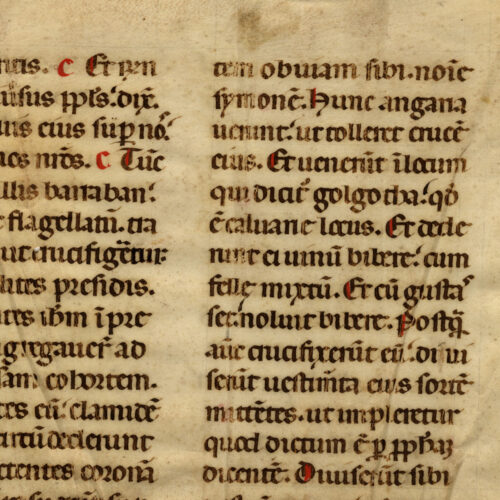 ntis. C Et ɼen
usus pp̄ls. dix̄.
lus eius sup̄ nō.
nos nr̄os. C Tūc
illis barraban.
t flagellatū. tra
ut crucifigeret̄ur
lites presidis.
tes ihm̄ ī pre
gregauer̄t ad
sam cohortem.
tes eū. clamidē
circūdederunt
ctentes coronā
tem obuiam sibi. noīe
symonē. Hunc angaria
uerunt. ut tolleret crucē
eius. Et uenerūt ī locum
qui dicit̄ golgotha. qd̄
ē caluarie locus. Et dede
runt ei uinū bibere. cum
felle mixtū. Et cū gustas
set. noluit bibere. Postq̄
aūt crucifixerūt eū. diui
serūt uestim̄ta eius sortē
mittētes. ut impleretur
quod dictum ē ꝑ ꝓph̄am
dicentē. Diuiserūt sibi